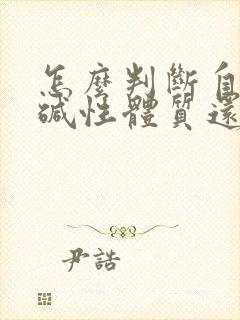 怎麼判斷自
鹼性體質還
尹誥